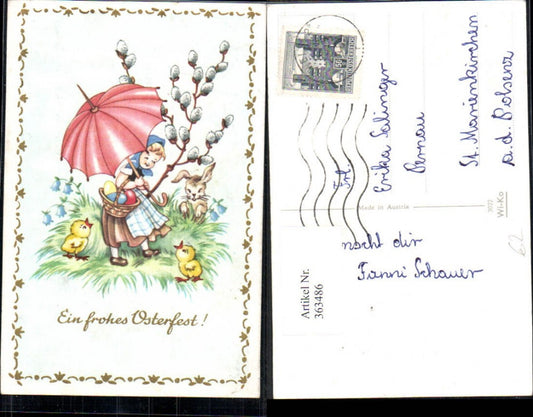 Ein frohes Osterfest!
Frl.
Erika Salinger
Pernau
St. Marienkirchen
a.d. Polsenz
Made in Austria
3022
Wi-Ko
macht dir
Fanni Schauer
Artikel Nr.
363486